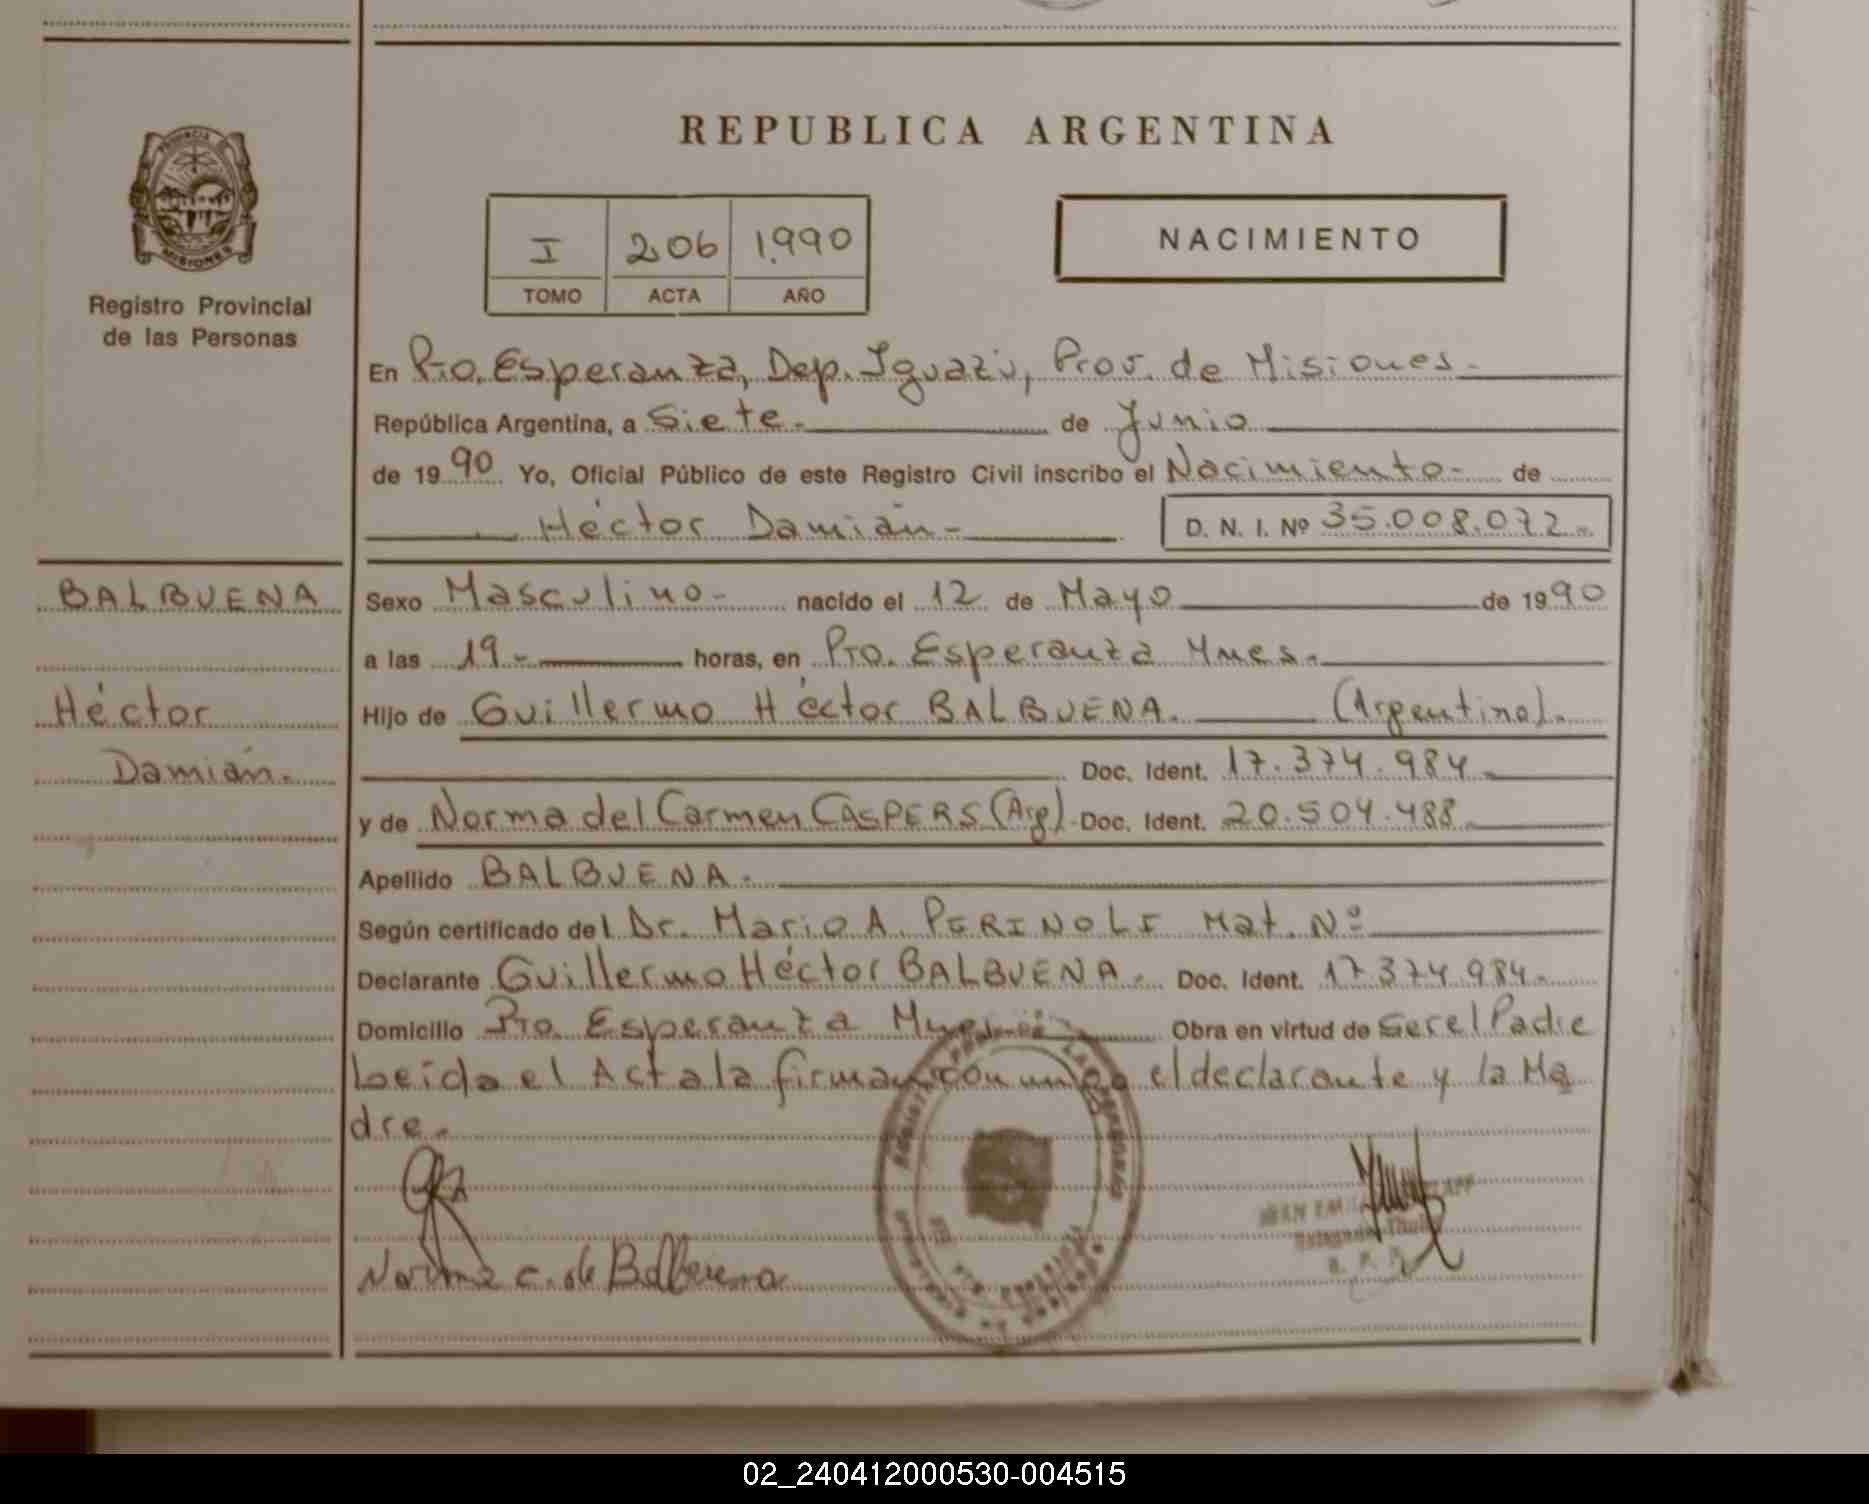 REPUBLICA ARGENTINA
PROVINCIA
MISIONES
Registro Provincial
de las Personas
I 206 1.990
TOMO ACTA AÑO
NACIMIENTO
En Pto. Esperanza, Dep. Iguazú, Prov. de Misiones.-
República Argentina, a Siete.- de Junio
de 1990 Yo, Oficial Público de este Registro Civil inscribo el Nacimiento- de
Héctor Damián- D. N. I. Nº 35.008.072.-
BALBUENA
Héctor
Damián.-
Sexo Masculino- nacido el 12 de Mayo de 1990
a las 19.- horas, en Pto. Esperanza Mnes.-
Hijo de Guillermo Héctor BALBUENA. (Argentino).-
Doc. Ident. 17.374.984.-
y de Norma del Carmen CASPERS (Arg). Doc. Ident. 20.504.488.-
Apellido BALBUENA.-
Según certificado del Dr. Mario A. PERINOLI Mat. Nº
Declarante Guillermo Héctor BALBUENA.- Doc. Ident. 17.374.984.-
Domicilio Pto. Esperanza Obra en virtud de ser el Padre
Leída el Acta la firman con migo el declarante y la Ma
dre.-
Norma C. de Balbuena
02_240412000530-004515